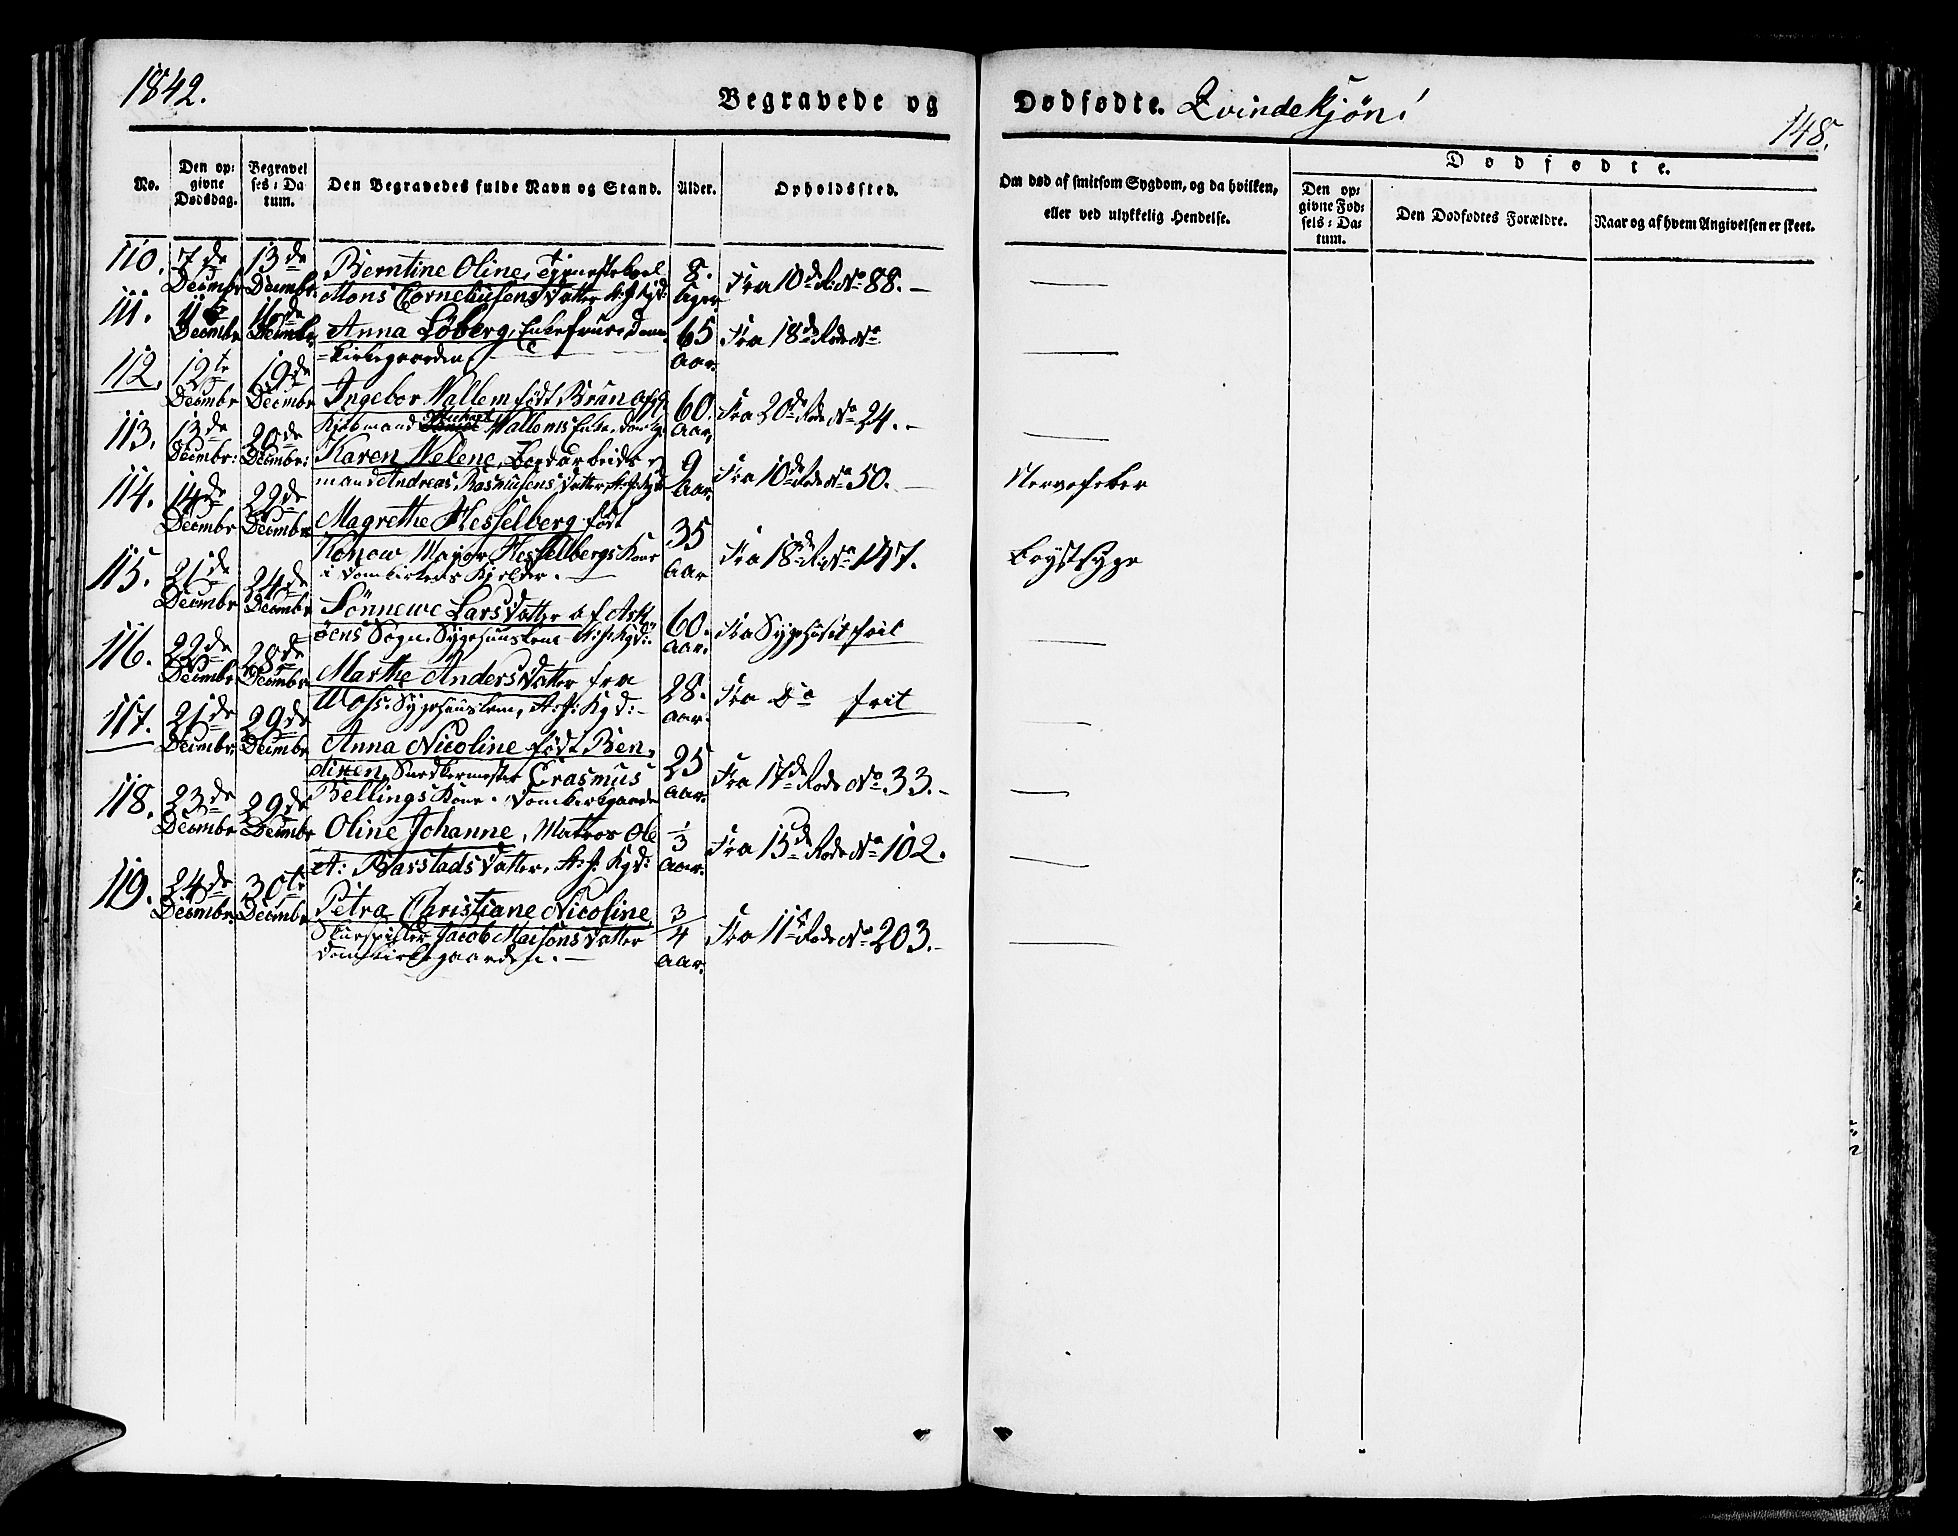 1842.
Begravede og Dødfødte. Qvindekjøn!
148.
No.
Den op-
givne
Dødsdag.
Begravel
ses-Da
tum.
Den Begravedes fulde Navn og Stand.
Alder.
Opholdssted.
Om død af smitsom Sygdom, og da hvilken,
eller ved ulykkelig Hendelse.
Dødfødte.
Den op-
givne Fød-
sels-Da-
tum.
Den Dødfødtes Forældre.
Naar og af hvem Angivelsen er skeet.
110. 7de Decembr 13de Decembr. Berntine Oline, Tjenestekarl
Mons Corneliusens Datter A: f: Kgd: 8. Fra 10de R: No 88. —
111. Decembr 16de Decembr. Anna Løberg, Enkefrue, Dom-
=kirkegaarden 65 Aar. Fra 18de Rode No
112. 12te Decembr 19de Decembr Ingebor Wallem født Brun afg.
Kjøbmand Wallems Enke, 60. Aar. Fra 20de Rode No 24. —
113. 13de Decembr: 20de Decembr: Karen Helene, Bordarbeids
mand Andreas Rasmusens Datter, A: f: Kgd 9 Aar. Fra 10de Rode No 50. — Nervefeber
114. 14de Decembr 22de Decembr Magrethe Hesselberg født
Konow Major Hesselbergs Kone
i Domkirkens Kjelder. — 35 Aar Fra 18de R: No 147. Brystsyge
115. 21de Decembr 24de Decembr Sönnewe Larsdatter af Ask-
øens Sogn. Sygehuuslem A: f: Kgd: 60. Aar. Fra Sygehuset frit
116. 22de Decembr 28de Decembr Marthe Andersdatter fra
Woss. Sygehuuslem, A: f: Kgd: — 28. Aar. Fra Do frit
117. 21de Decembr. 29de Decembr Anna Nicoline født Ben-
dixen, Snedkermester Erasmus
Bellings Kone. Domkirkgaarde 25 Aar. Fra 17de Rode No 33. —
118. 23de Decembr 29de Decembr Oline Johanne, Matros Ole
A: Barstads Datter, A: f: Kgd: 1/3 Aar. Fra 15de Rode No 102.
119. 24de Decembr. 30te Decembr Petra Christiane Nicoline,
Skuespiller Jacob Maisons Datter
Domkirkegaarden. — 3/4 Aar. Fra 11te Rode No 203. —